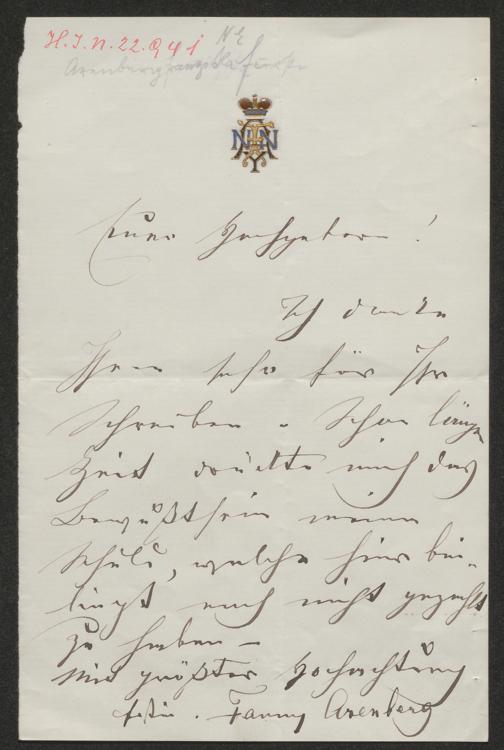 H.I.N. 22.941
NE
Arenberg
Euer Hochgeboren!
Ich danke
Ihnen sehr für Ihr
Schreiben - Schon länge
Zeit drückte mich das
Bewußtsein meine
Schuld, welche hier bei-
liegt noch nicht gezahlt
zu haben -
Mit größter Hochachtung
Fanny Arenberg